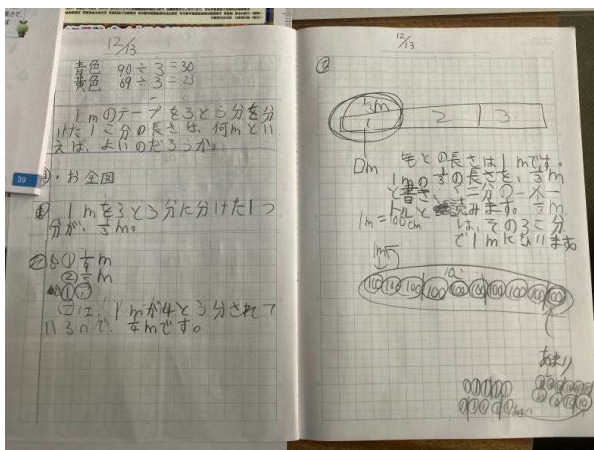 12/13
青色 90÷3=30
黄色 69÷3=23
1mのテープを3とう分を分
けた1こ分の長さは、何mとい
えば、よいのだろうか。
・お金図
1mを3とう分に分けた1つ
分が、1/3m。
①
②
は、1mが4とう分されて
いるので、1/4mです。
39
12/13
1/3m
1 2 3
□m
もとの長さは1mです。
1mの1/3の長さを、1/3m
と書き、三分の一メー
トルと読みます。1/3m
は、その3こ分
で1mになります。
1m=100cm
100 100 100 100 100 100 100 100 100 100
あまり